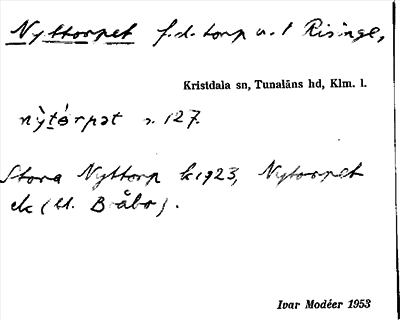 Nyttorpet f.d. torp u. t Risinge,
Kristdala sn, Tunaläns hd, Klm. l.
nỳtórpət s. 127.
Stora Nyttorp k 1923, Nytorpet
ek (tl. Bråbo).
Ivar Modéer 1953